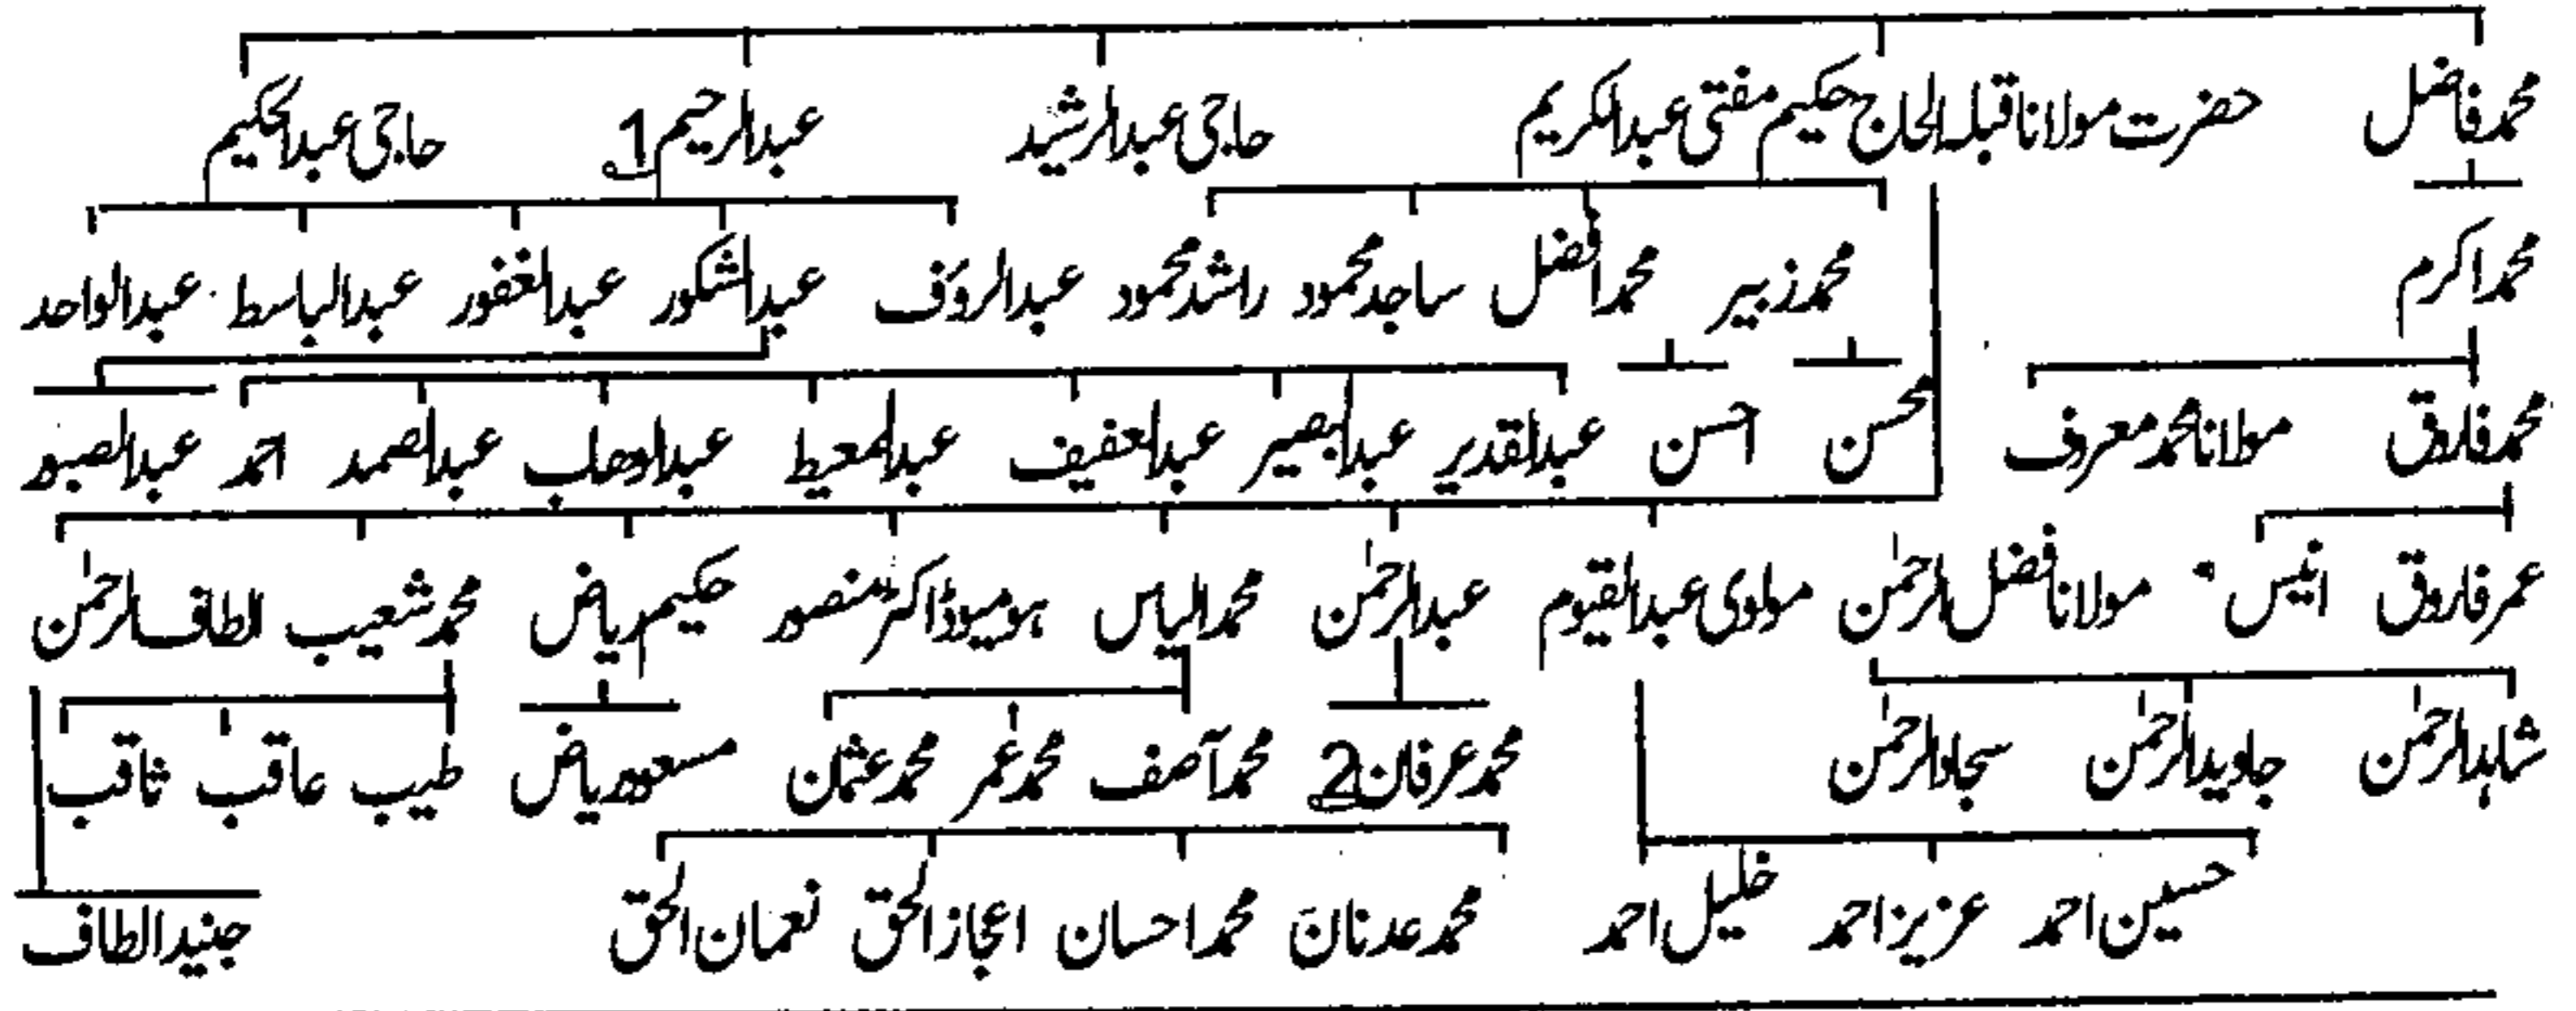 محمد فاضل حضرت مولانا قبلہ الحاج حکیم مفتی عبدالکریم حاجی عبدالرشید عبدالرحیم 1 حاجی عبدالحکیم
محمد اکرم محمد زبیر محمد افضل ساجد محمود راشد محمود عبدالروف عبدالشکور عبدالغفور عبدالباسط عبدالواحد
محمد فاروق مولانا محمد معروف محسن احسن عبدالقدیر عبدالبصیر عبدالعفیف عبدالمعیط عبدالوھاب عبدالصمد احمد عبدالصبور
عمر فاروق انیس مولانا فضل الرحمٰن مولوی عبدالقیوم عبدالرحمٰن محمد الیاس ہومیوڈاکٹر منصور حکیم ریاض محمد شعیب الطاف الرحمٰن
شاہد الرحمٰن جاوید الرحمٰن سجاد الرحمٰن محمد عرفان 2 محمد آصف محمد عمر محمد عثمان مسعود ریاض طیب عاقب ثاقب
حسین احمد عزیز احمد خلیل احمد محمد عدنان محمد احسان اعجاز الحق نعمان الحق جنید الطاف